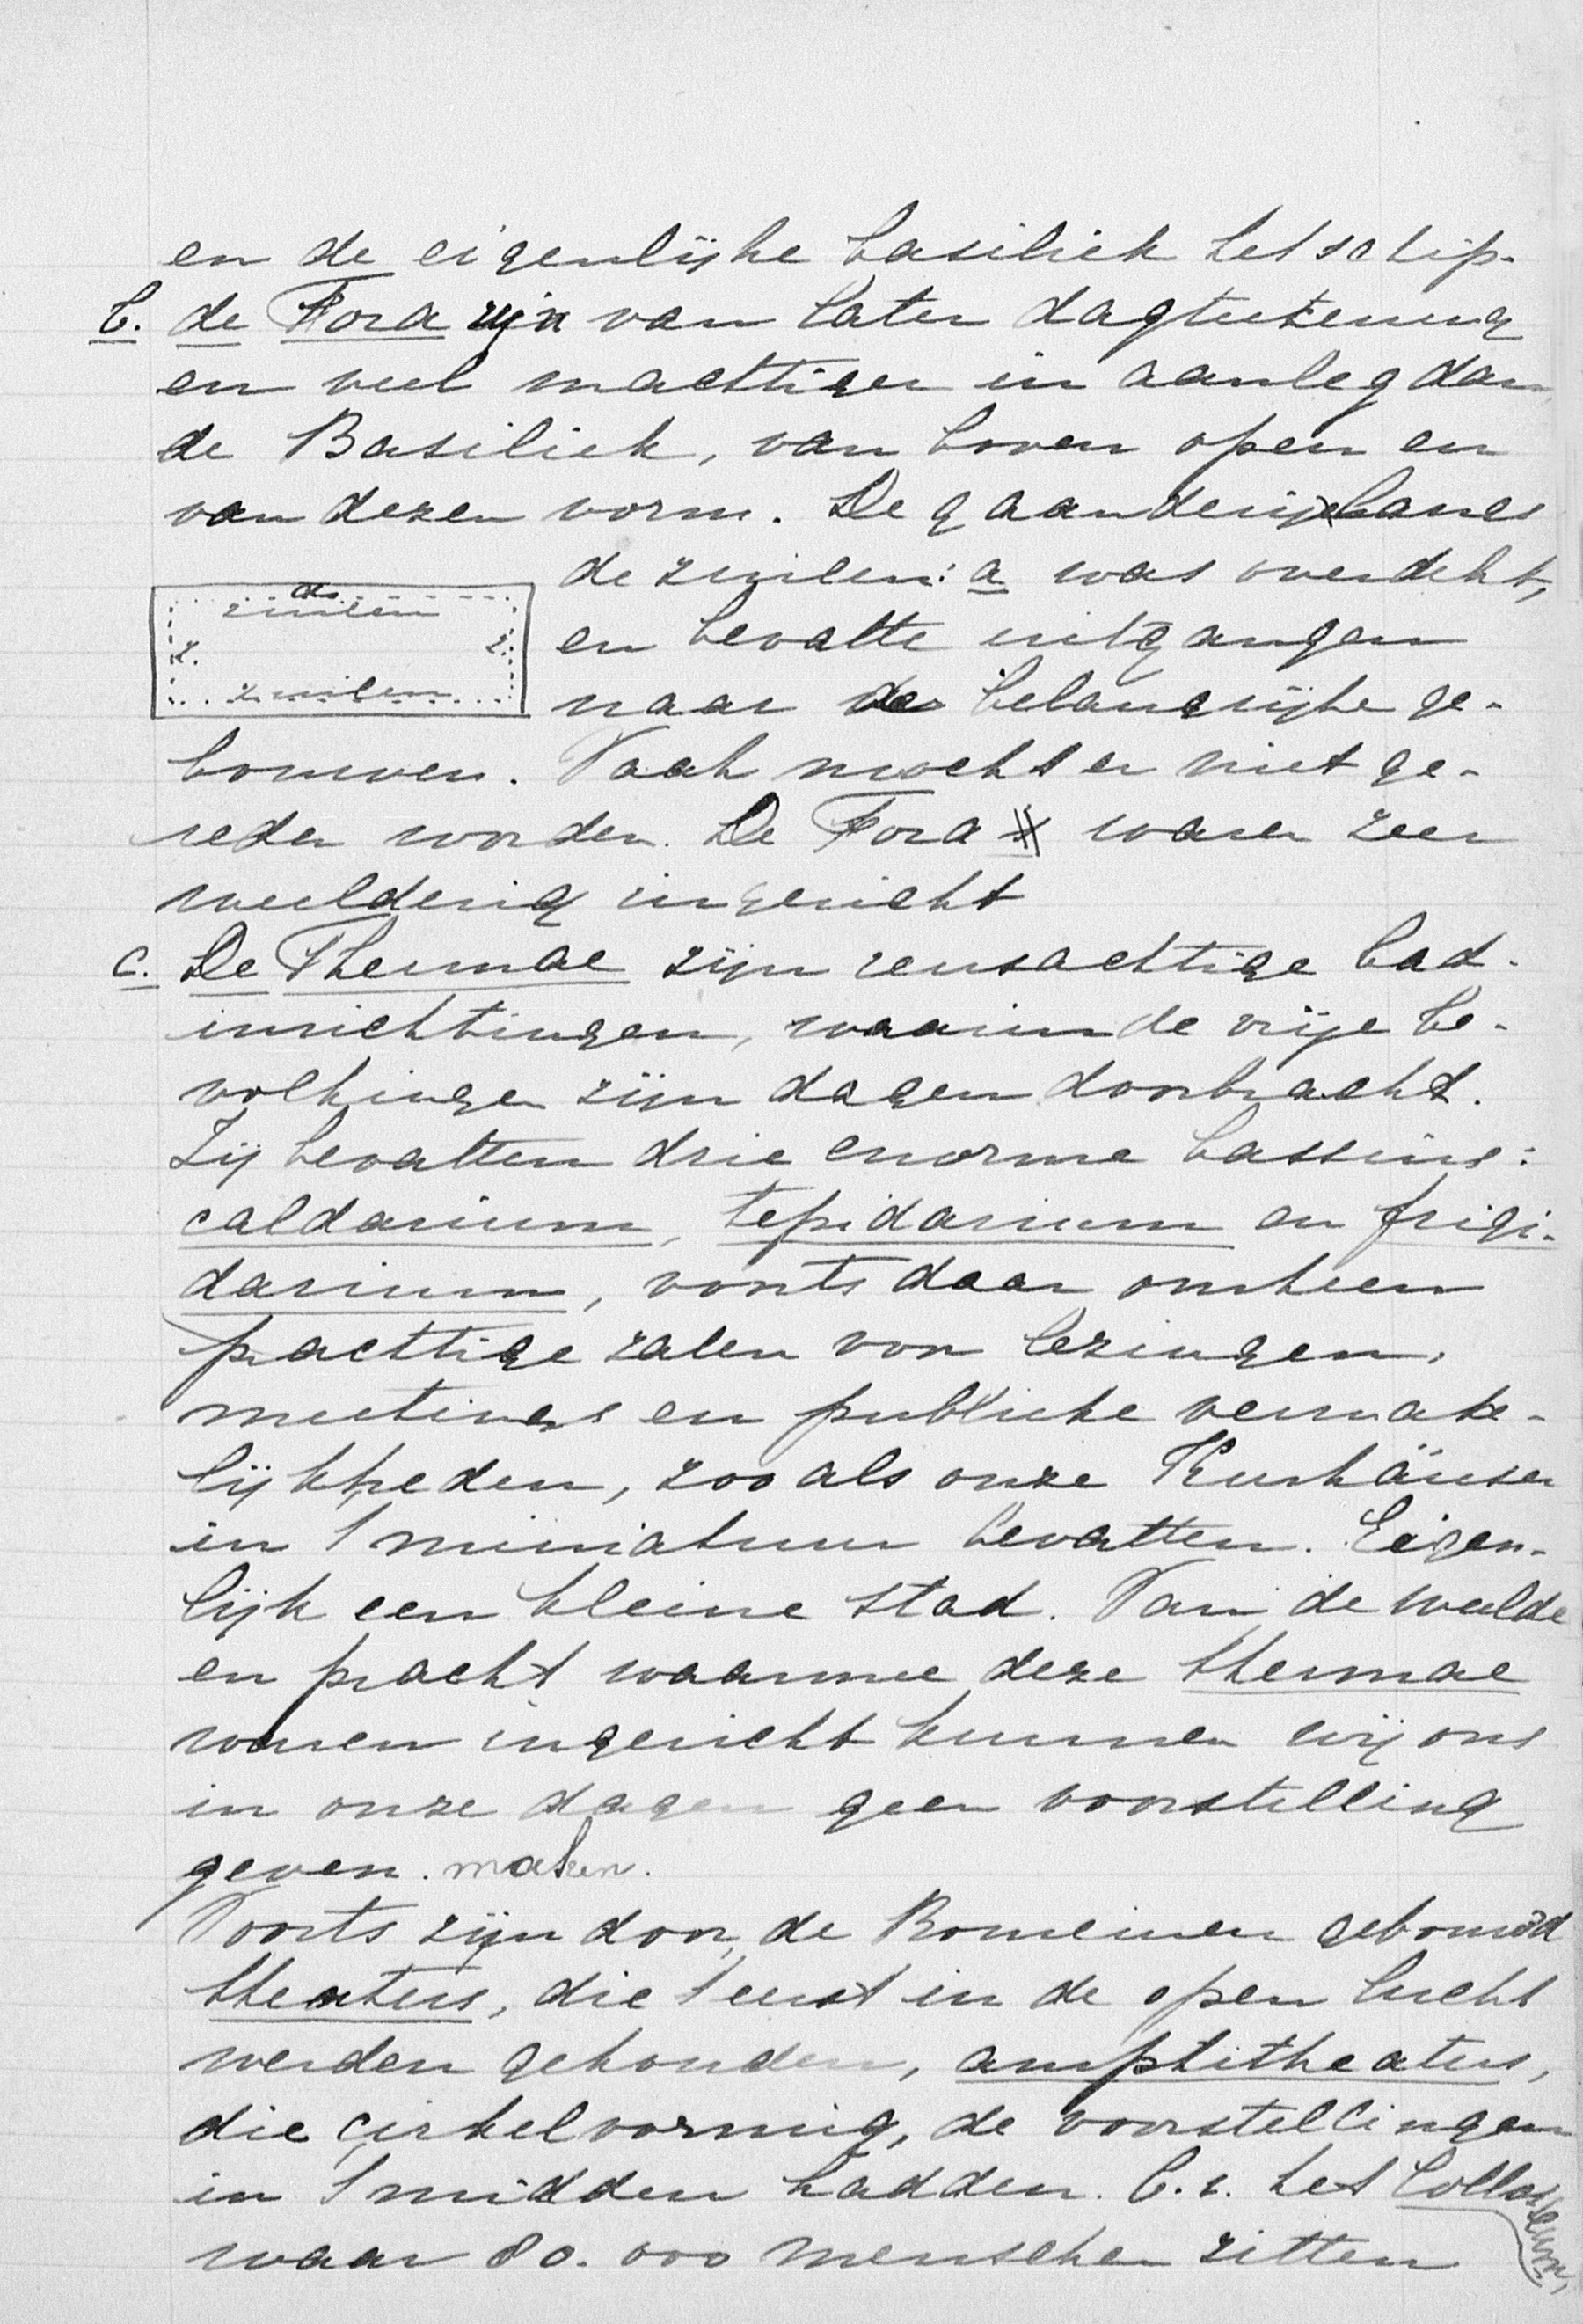 en de eigenlijke basiliek het schip.
b. de Fora zijn van later dagteekening
en veel machtiger in aanleg dan
de Basiliek, van boven open en
van dezen vorm. De gaanderij langs
de zuilen: a was overdekt,
a
zuilen
z. z.
zuilen
en bevatte uitgangen
naar de belangrijke ge-
bouwen. Vaak mocht er niet ge-
reden worden. De Fora waren zeer
weelderig ingericht
c. De Thermae zijn reusachtige bad-
inrichtingen, waarin de vrije be-
volkingen zijn dagen doorbracht.
Zij bevatten drie enorme bassins:
caldarium, tepidarium en frigi-
darium, voorts daar omheen
prachtige zalen voor lezingen,
meetings en publieke vermake-
lijkheden, zooals onze Kurhäuser
in 't miniatuur bevatten. Eigen-
lijk een kleine stad. Van de weelde
en pracht waarmee deze thermae
waren ingericht kunnen wij ons
in onze dagen geen voorstelling
geven. maken.
Voorts zijn door de Romeinen gebouwd
theaters, die 't eerst in de open lucht
werden gehouden, amphitheaters,
die cirkelvormig, de voorstellingen
in 't midden hadden. b.v. het Collosseum,
waar 80.000 menschen zitten